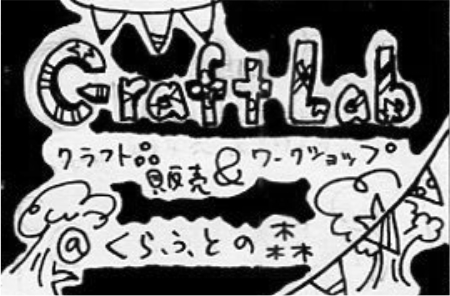 Craft Lab
クラフト品
販売&ワークショップ
@くらふとの森